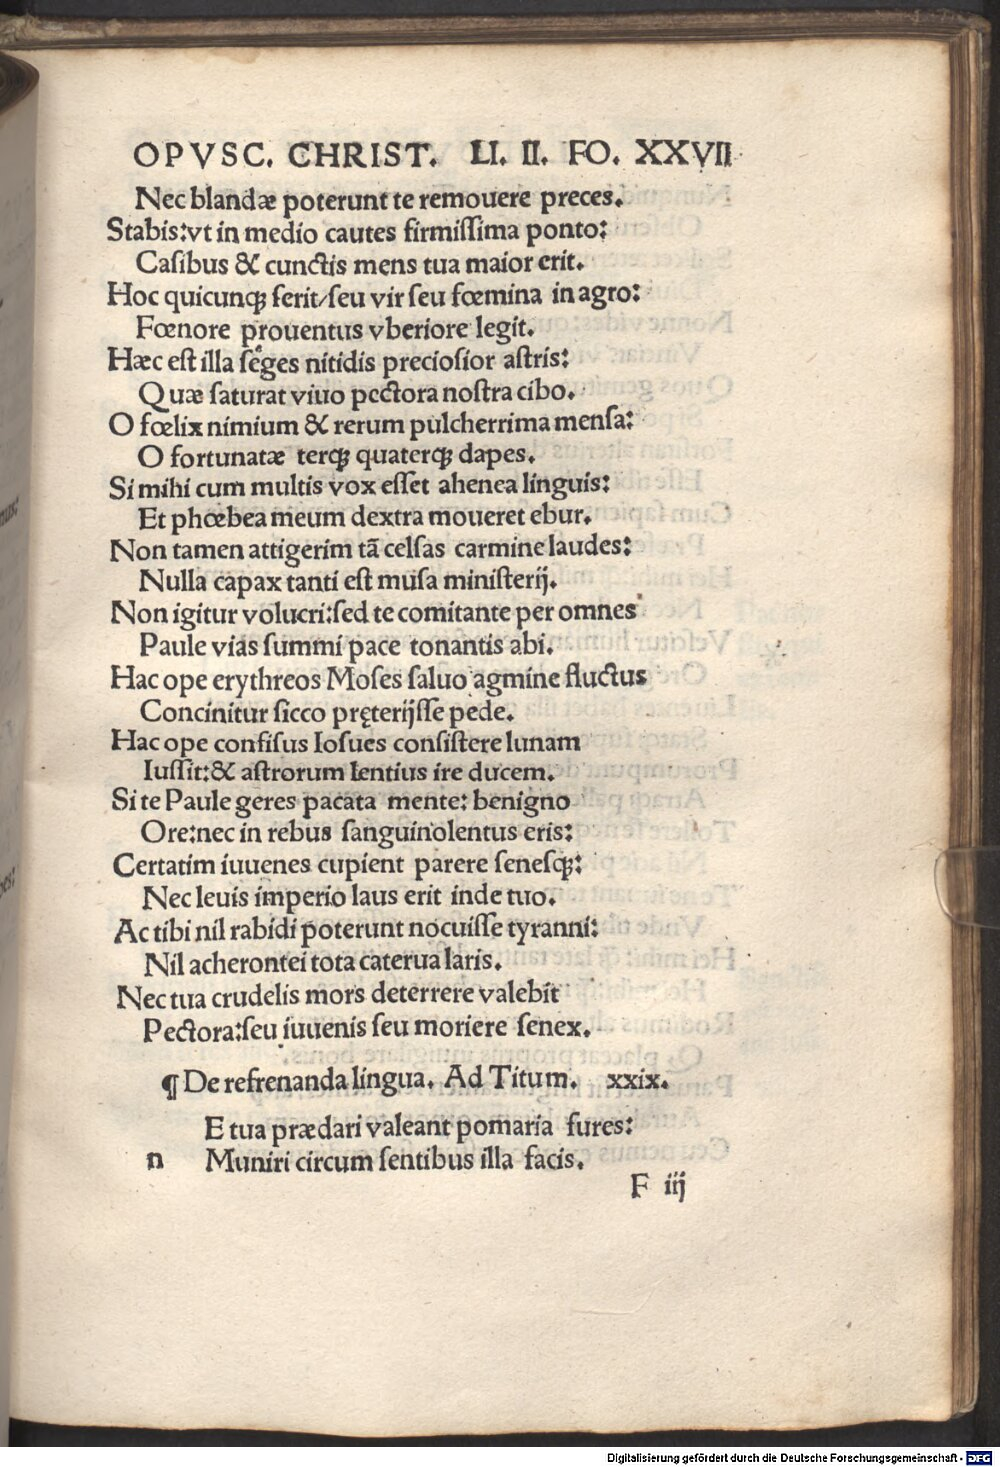 OPVSC. CHRIST. LI. II. FO. XXVII
Nec blandæ poterunt te remouere preces.
Stabis:vt in medio cautes firmiſſima ponto:
Caſibus & cunctis mens tua maior erit.
Hoc quicunqꝫ ſerit/ſeu vir ſeu fœmina in agro:
Fœnore prouentus vberiore legit.
Hæc eſt illa ſeges nitidis precioſior aſtris:
Quæ ſaturat viuo pectora noſtra cibo.
O fœlix nimium & rerum pulcherrima menſa:
O fortunatæ terqꝫ quaterqꝫ dapes.
Si mihi cum multis vox eſſet ahenea linguis:
Et phœbea meum dextra moueret ebur.
Non tamen attigerim tā celſas carmine laudes:
Nulla capax tanti eſt muſa miniſterij.
Non igitur volucri:ſed te comitante per omnes
Paule vias ſummi pace tonantis abi.
Hac ope erythreos Moſes ſaluo agmine fluctus
Concinitur ſicco pręterijſſe pede.
Hac ope confiſus Ioſues conſiſtere lunam
Iuſſit:& aſtrorum lentius ire ducem.
Si te Paule geres pacata mente: benigno
Ore:nec in rebus ſanguinolentus eris:
Certatim iuuenes cupient parere ſeneſqꝫ:
Nec leuis imperio laus erit inde tuo.
Ac tibi nil rabidi poterunt nocuiſſe tyranni:
Nil acherontei tota caterua laris.
Nec tua crudelis mors deterrere valebit
Pectora:ſeu iuuenis ſeu moriere ſenex.
¶ De refrenanda lingua. Ad Titum. xxix.
E tua prædari valeant pomaria fures:
n Muniri circum ſentibus illa facis.
F iij
Digitalisierung gefördert durch die Deutsche Forschungsgemeinschaft - DFG